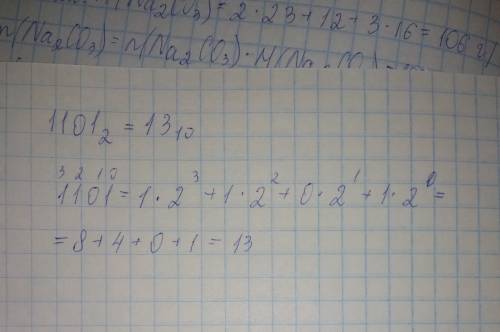 (Na₂CO₃) = 2·23+12+3·16 = 106 г/
n(Na₂CO₃) = n(Na₂CO₃)·M(Na₂CO₃)
1101₂ = 13₁₀
3 2 1 0
1101 = 1·2³ + 1·2² + 0·2¹ + 1·2⁰ =
= 8+4+0+1 = 13